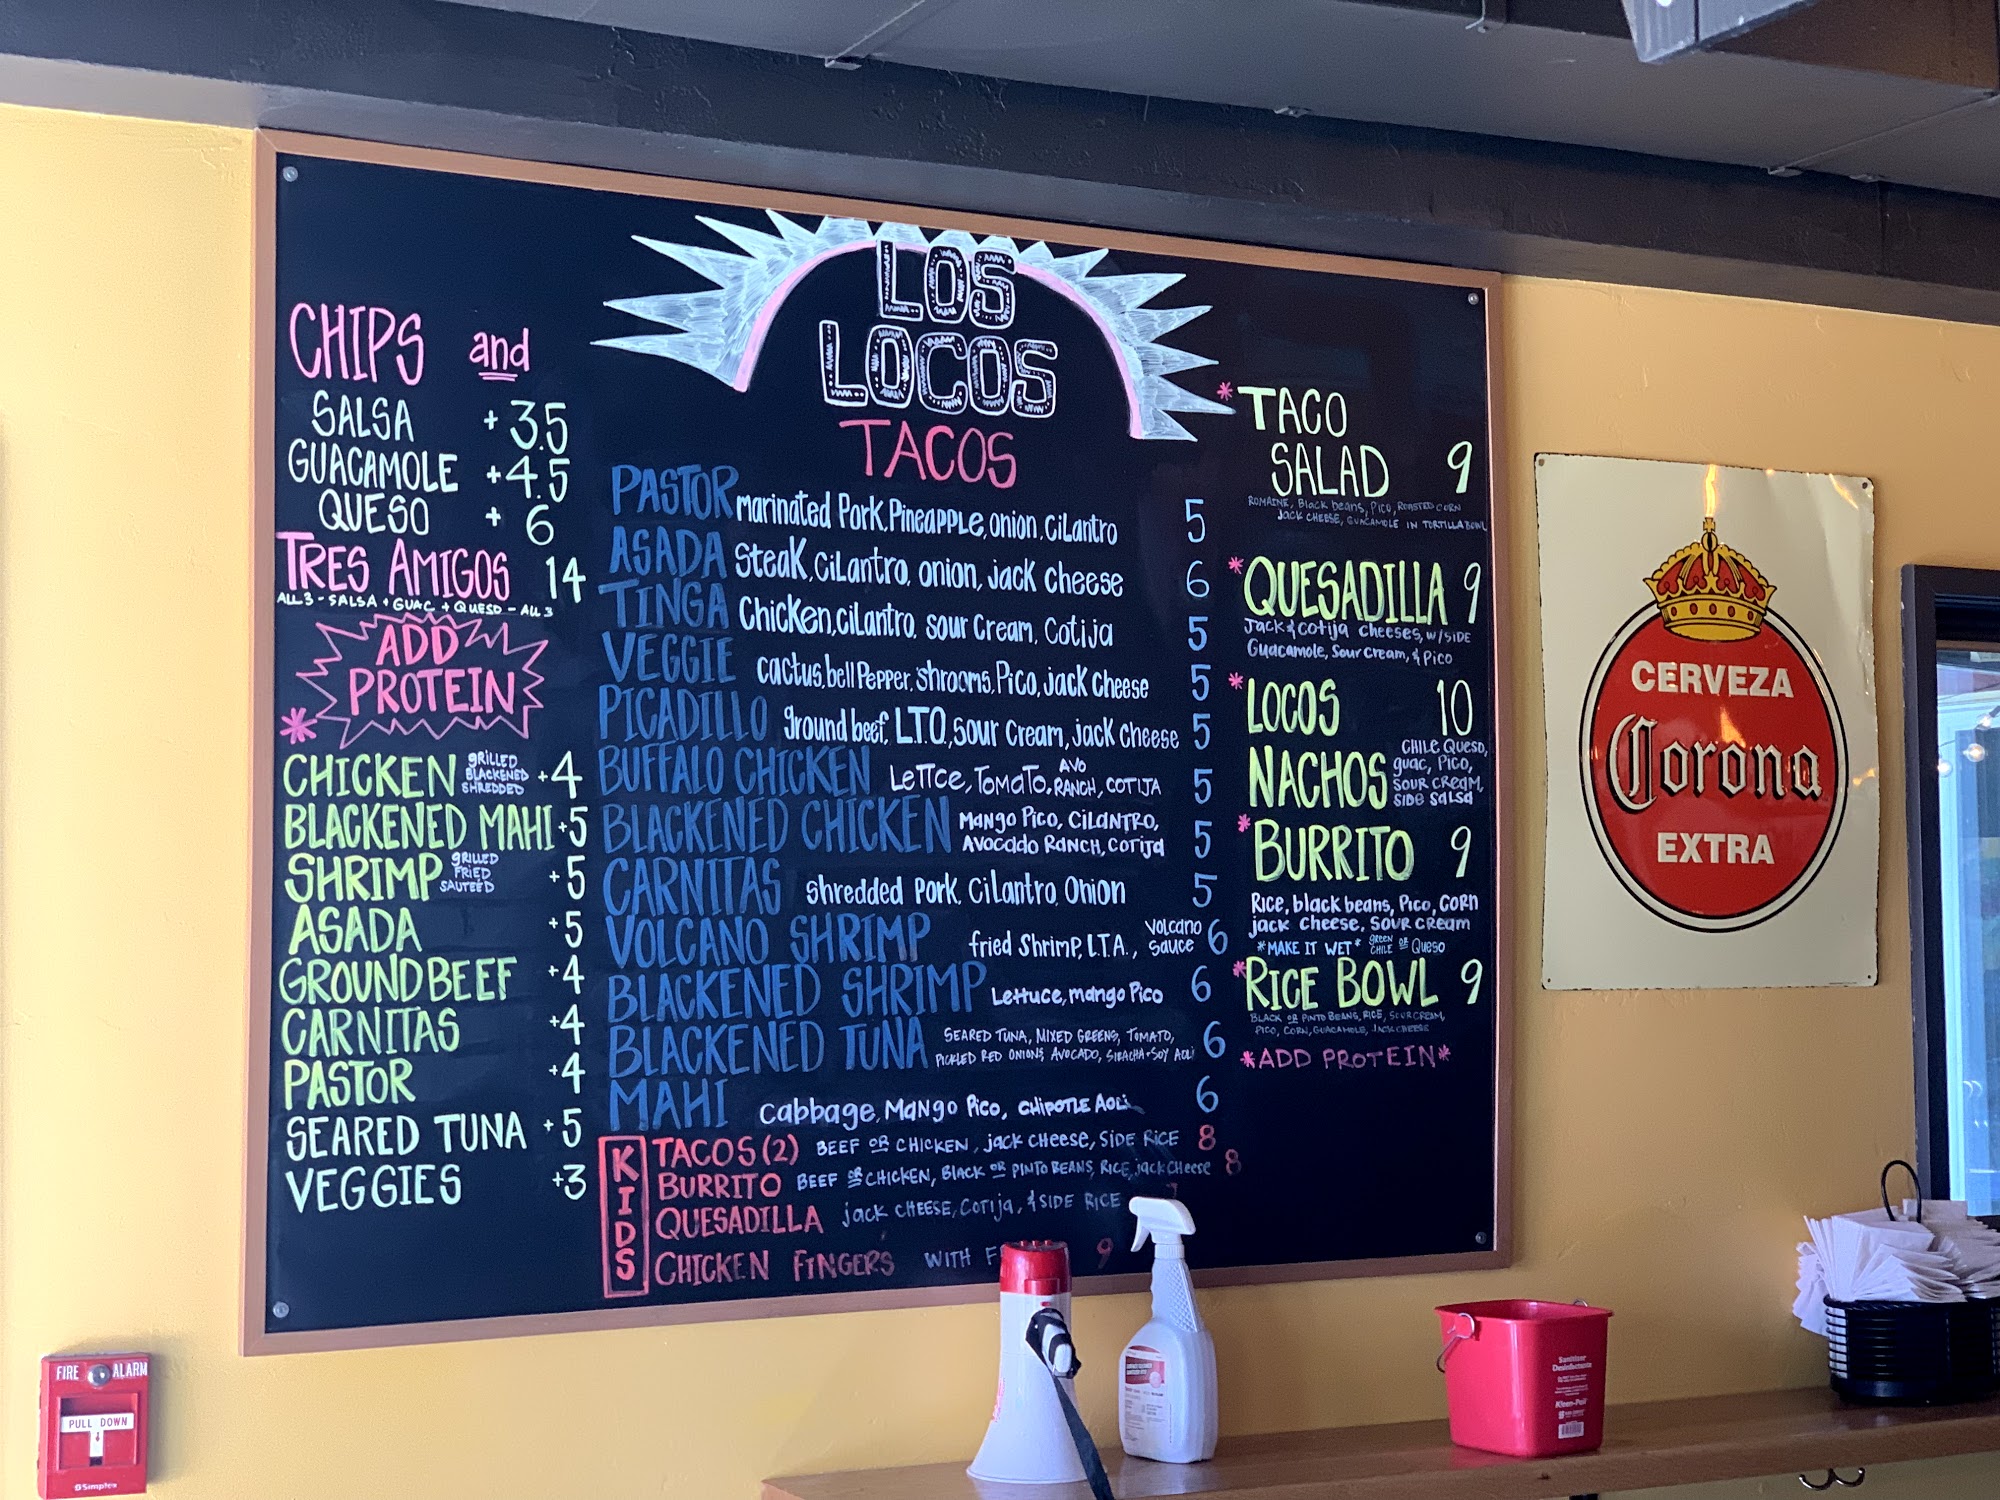 LOS
LOCOS
TACOS
CHIPS and
SALSA + 3.5
GUACAMOLE + 4.5
QUESO + 6
TRES AMIGOS 14
ALL 3 - SALSA + GUAC + QUESO - ALL 3
ADD
PROTEIN
*
CHICKEN GRILLED BLACKENED SHREDDED +4
BLACKENED MAHI +5
SHRIMP GRILLED FRIED SAUTEED +5
ASADA +5
GROUND BEEF +4
CARNITAS +4
PASTOR +4
SEARED TUNA +5
VEGGIES +3
PASTOR marinated Pork, Pineapple, onion, Cilantro 5
ASADA Steak, Cilantro, onion, jack cheese 6
TINGA Chicken, cilantro, sour cream, Cotija 5
VEGGIE cactus, bell Pepper, shrooms, Pico, jack cheese 5
PICADILLO ground beef, L.T.O., sour cream, jack cheese 5
BUFFALO CHICKEN LeTTce, TOMATO, AVO RANCH, COTIJA 5
BLACKENED CHICKEN Mango Pico, CiLANTRO,
AVOCADO RANCH, COTIJA 5
CARNITAS Shredded Pork, Cilantro, Onion 5
VOLCANO SHRIMP fried Shrimp, L.T.A., Volcano Sauce 6
BLACKENED SHRIMP Lettuce, mango Pico 6
BLACKENED TUNA SEARED TUNA, MIXED GREENS, TOMATO,
PICKLED RED ONIONS, AVOCADO, SIRACHA + SOY AOLI 6
MAHI Cabbage, Mango Pico, CHIPOTLE AOLi 6
KIDS
TACOS (2) BEEF OR CHICKEN, jack cheese, SIDE RICE 8
BURRITO BEEF OR CHICKEN, BLACK OR PINTO BEANS, RICE, jack cheese 8
QUESADILLA jack CHEESE, Cotija, & SIDE RICE
CHICKEN FINGERS WITH 9
* TACO
SALAD 9
ROMAINE, Black beans, PICO, ROASTED CORN
jack CHEESE, GUACAMOLE IN TORTILLA BOWL
* QUESADILLA 9
Jack & Cotija cheeses, w/ SIDE
Guacamole, Sour cream, & Pico
* LOCOS 10
NACHOS CHILE QUESO,
guac, PICO,
SOUR CREAM,
SIDE SALSA
* BURRITO 9
RICE, black beans, PICO, CORN
jack cheese, SOUR CREAM
*MAKE IT WET* GREEN CHILE OR QUESO
* RICE BOWL 9
BLACK OR PINTO BEANS, RICE, SOUR CREAM,
PICO, CORN, GUACAMOLE, JACK CHEESE
*ADD PROTEIN*
CERVEZA
Corona
EXTRA
FIRE ALARM
PULL DOWN
Simplex
Sanitizer
Desinfectante
Kleen-Pail